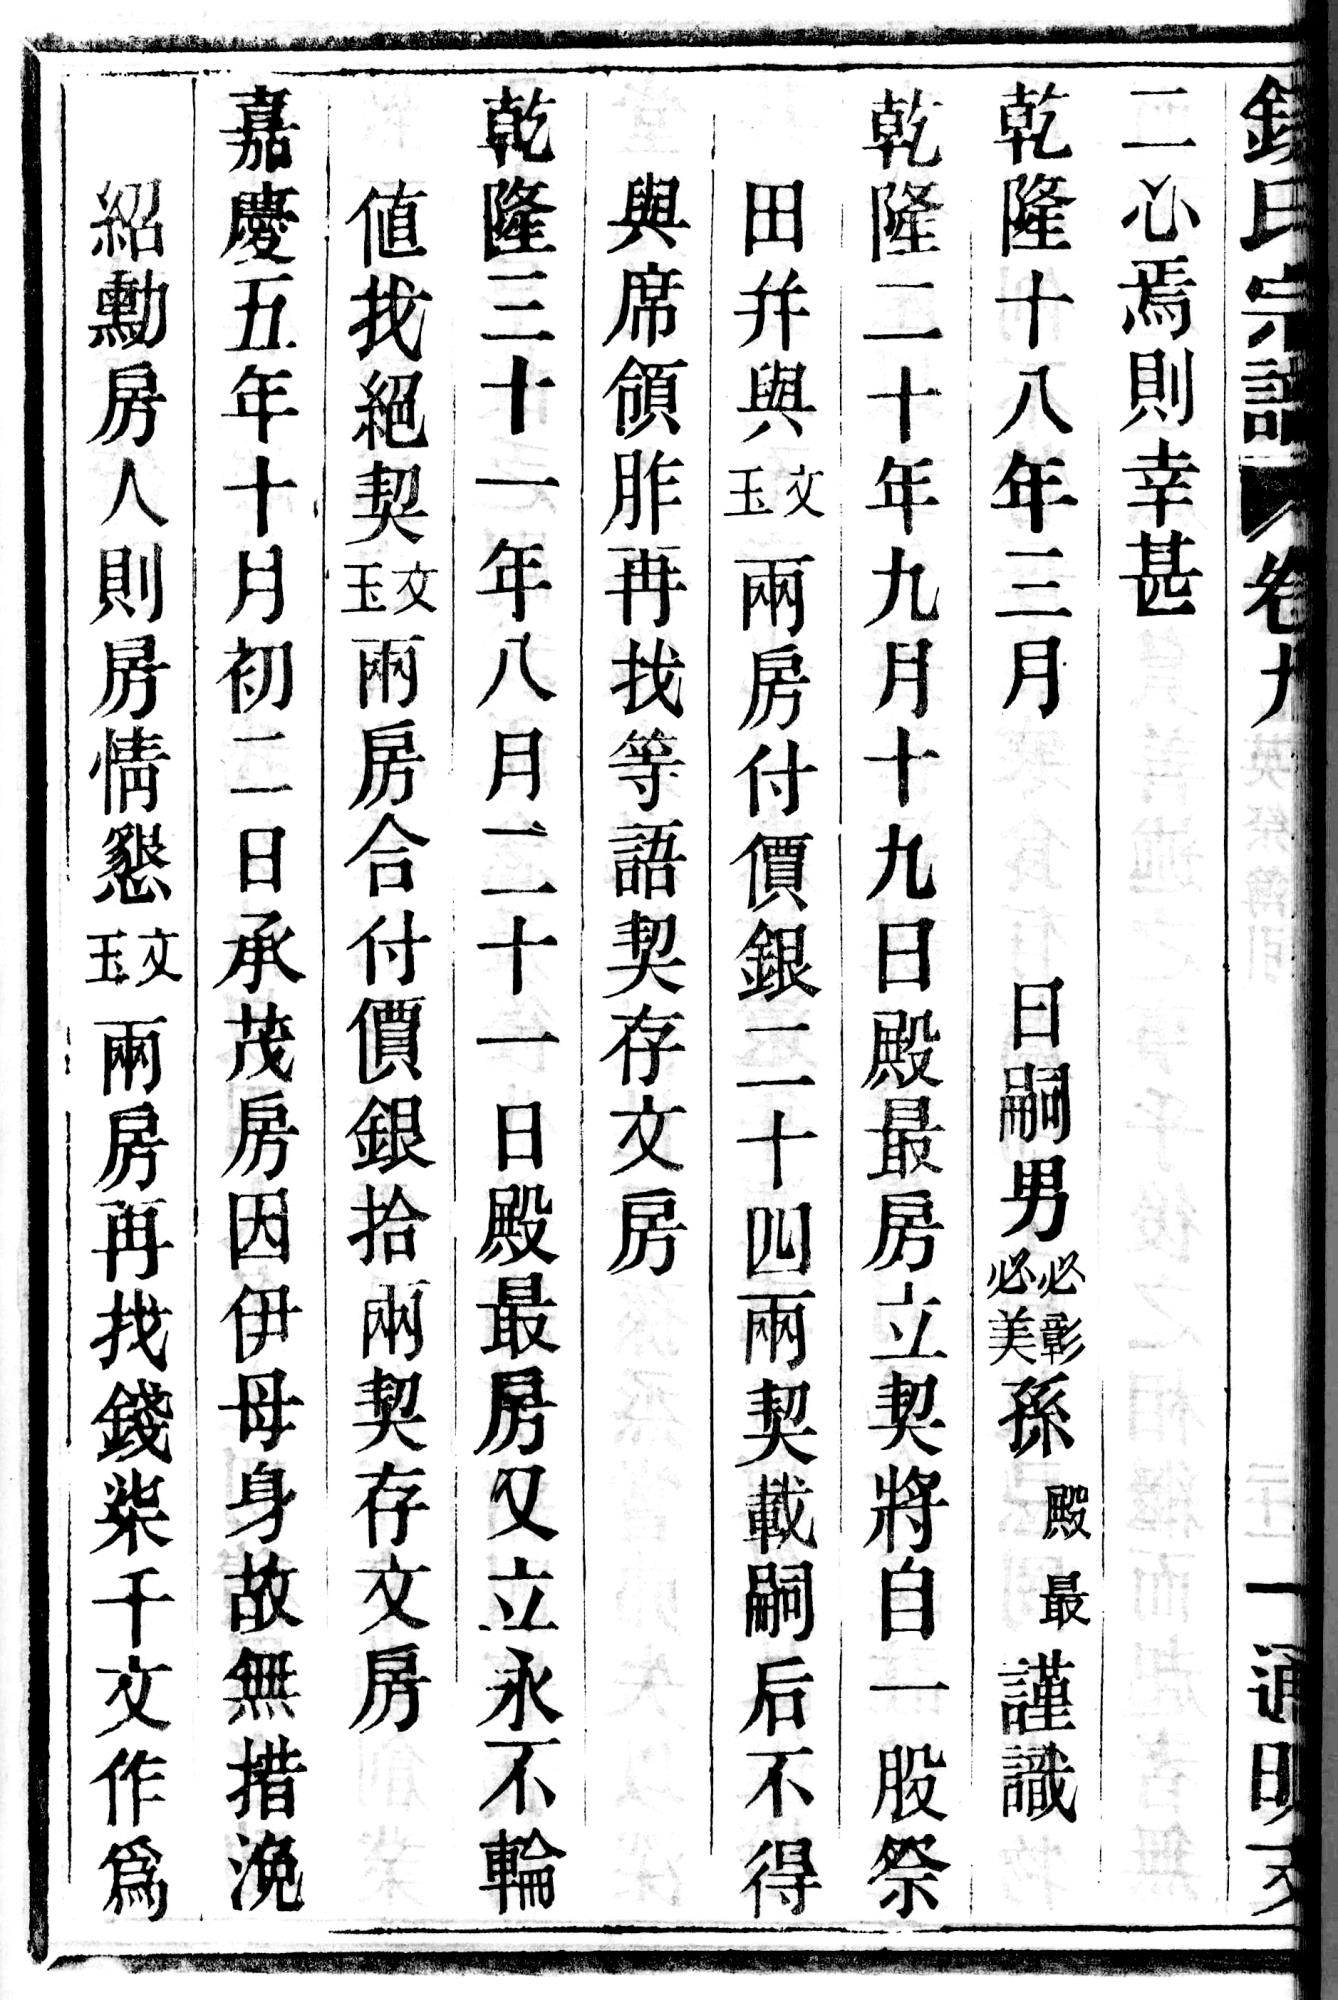 氏宗譜 卷九 一 通明
二心焉則幸甚
乾隆十八年三月 日嗣男必彰必美孫殿最謹識
乾隆二十年九月十九日殿最房立契將自一股祭
田幷與文玉兩房付價銀二十四兩契載嗣后不得
與席領胙再找等語契存文房
乾隆三十一年八月二十一日殿最房又立永不輪
値找絕契文玉兩房合付價銀拾兩契存文房
嘉慶五年十月初二日承茂房因伊母身故無措浼
紹勳房人則房情懇文玉兩房再找錢柒千文作爲